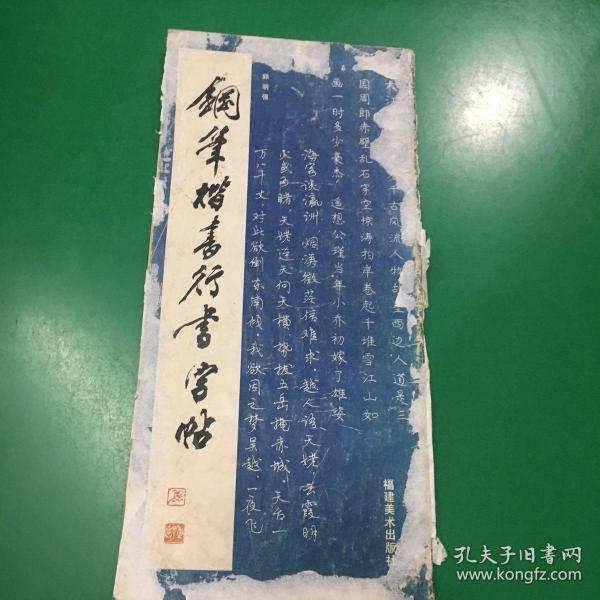 鋼筆楷書行書字帖
大
千古风流人物故
西边人道是三
国周郎赤壁乱石穿空惊涛拍岸卷起千堆雪江山如
画一时多少豪杰 遥想公瑾当年小乔初嫁了雄姿
海客谈瀛洲 烟涛微茫信难求，越人语天姥，云霞明
灭或可睹 天姥连天向天横 势拔五岳掩赤城，天台一
万八千丈 对此欲倒东南倾，我欲因之梦吴越，一夜飞
福建美术出版社
孔夫子旧书网
www.kongfz.com